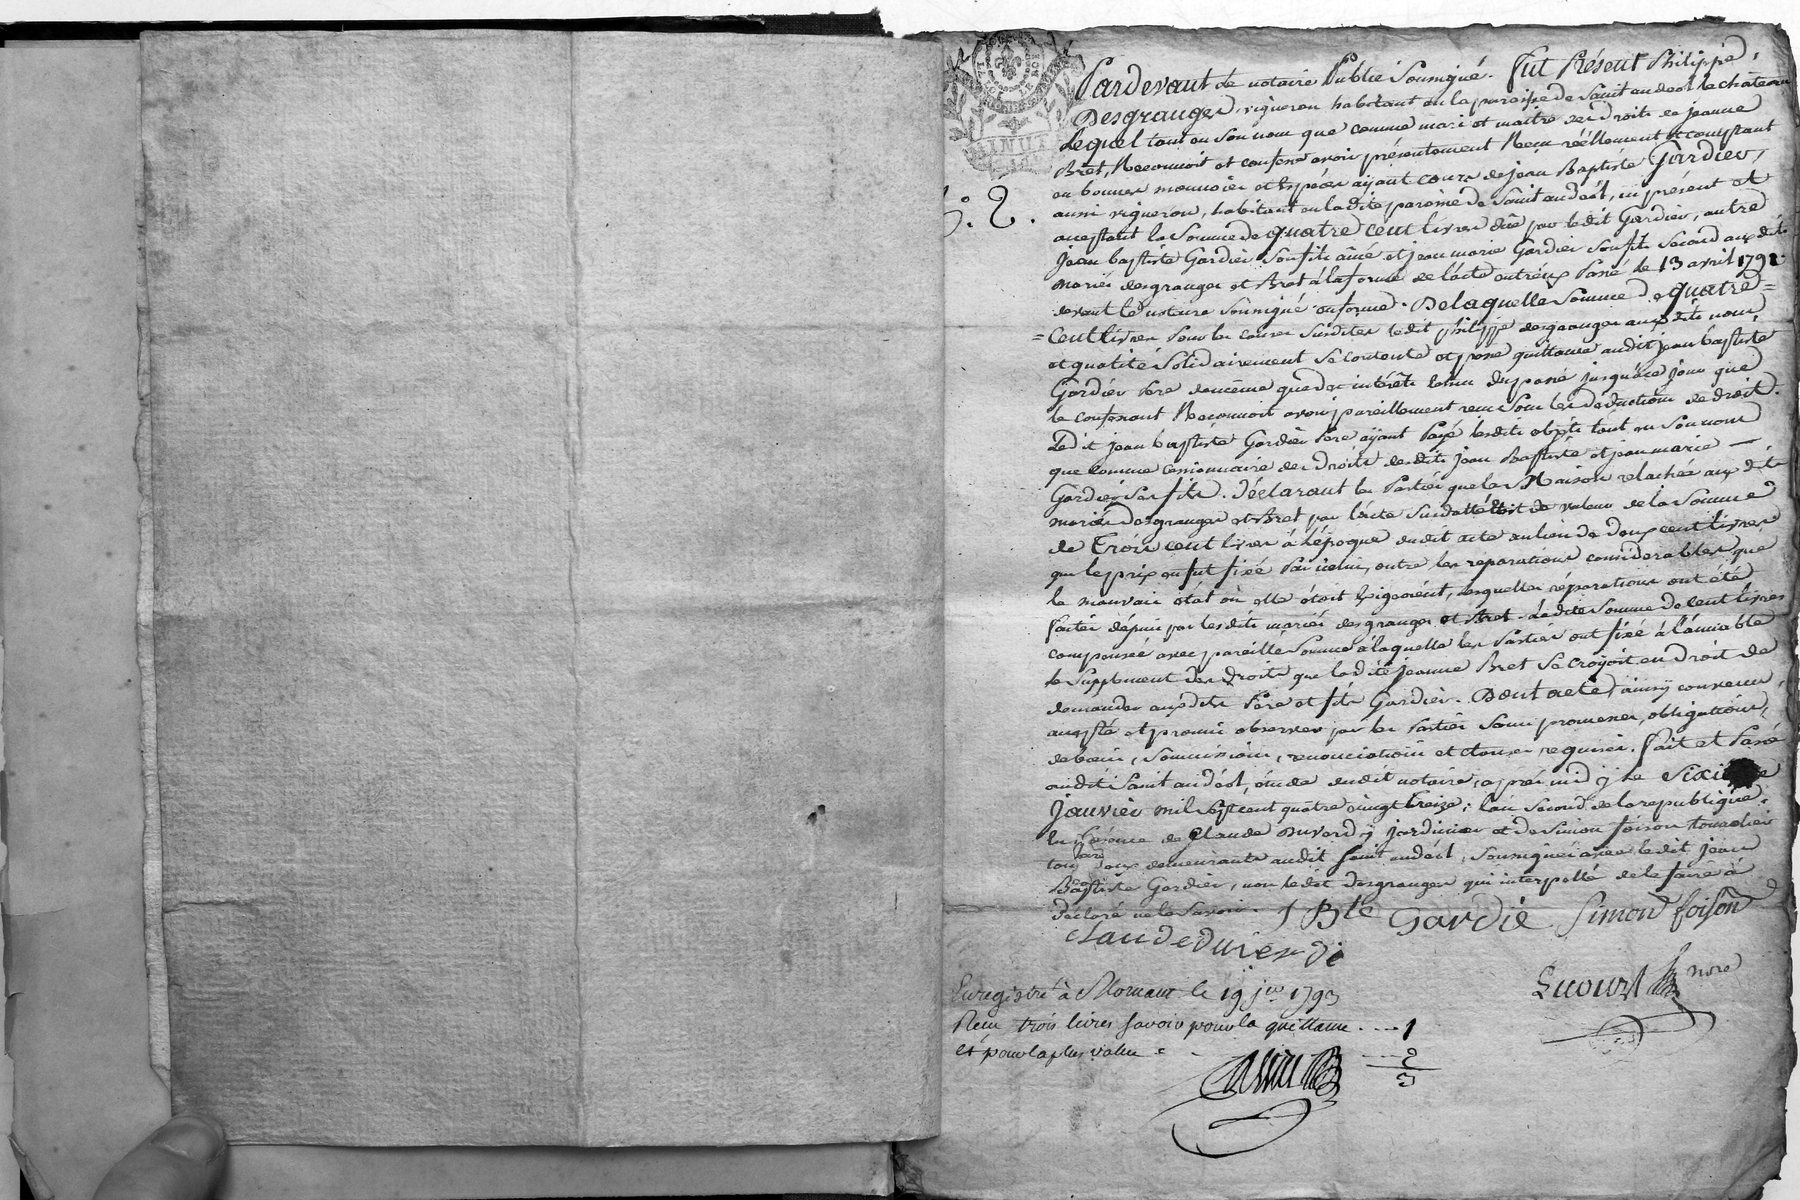 Pardevant le notaire Public Soussigné. fut Présent Philippe
Desgranges, vigneron habitant en la paroisse de Saint andeol le chateau
Lequel tant en Son nom que comme mari et maitre des Droits de jeanne
Bret, Reconnoit et confesse avoir présentement Reçu réellement et comptant
en bonnes monnoies et Espèces aÿant cours de jean Baptiste Gardier,
aussi vigneron, habitant en ladite paroisse de Saint andéol, ici présent et
acceptant la Somme de quatre cent livres düe par ledit Gardier, autre
jean baptiste Gardier Son fils ainé et jean marie Gardier Son fils Second auxdits
mariés desgranges et Bret à la forme de l'acte entr'eux Passé le 13 avril 1792
devant le notaire Soussigné en forme. De laquelle Somme de quatre =
= Cent livres Pour les causes Susdites ledit philippe desgranges auxdits noms
et qualité Solidairement Se contente et passe quittance audit jean baptiste
Gardier Pere de même que des intérêts du passé jusqu'à ce jour que
le confessant Reconnoit avoir pareillement reçus Sous les déductions de droit.
Ledit jean baptiste Gardier Pere aÿant Payé lesdits objets tant en Son nom
que comme cessionnaire des Droits desdits jean Baptiste et jean marie
Gardier Ses fils. Déclarant les Parties que la Maison relachée auxdits
mariés Desgranges et Bret par l'acte Susdatté étoit de valeur de la Somme
de Trois cent livres à l'époque dudit acte au lieu de deux cent livres
que le prix en fut fixé Par icelui, outre les reparations considerables que
le mauvais état où elle étoit Exigeoient, lesquelles réparations ont été
faites depuis par lesdits mariés desgranges et Bret. Ladite Somme de Cent livres
compensée avec pareille Somme à laquelle les Parties ont fixé à l'amiable
le Supplement des Droits que ladite jeanne Bret Se croÿoit en Droit de
demander auxdits Pere et fils Gardier. Dont acte, ainsy convenu,
accepté et promis observer par les Parties Sous promesses, obligations,
de biens, Soumissions, renonciations et clauses requises. fait et Passé
audit Saint andéol, étude dudit notaire, après midÿ le Sixieme
Janvier mil Sept cent quatre vingt treize, l'an Second de la republique.
En Présence de Claude Duverdÿ jardinier et de Simon foison
tous deux demeurants audit Saint andéol, Soussignés avec ledit Jean
Baptiste Gardier, non ledit desgranges qui interpellé de le faire à
déclaré ne le Savoir. J Bte Gardié Simon foison
Claude duverdi
Lucourt nore
Enregistré à Mornant le 19 jer 1793
Reçu trois livres Savoir pour la quittance .... 1
et pour la plus value .... 2
3